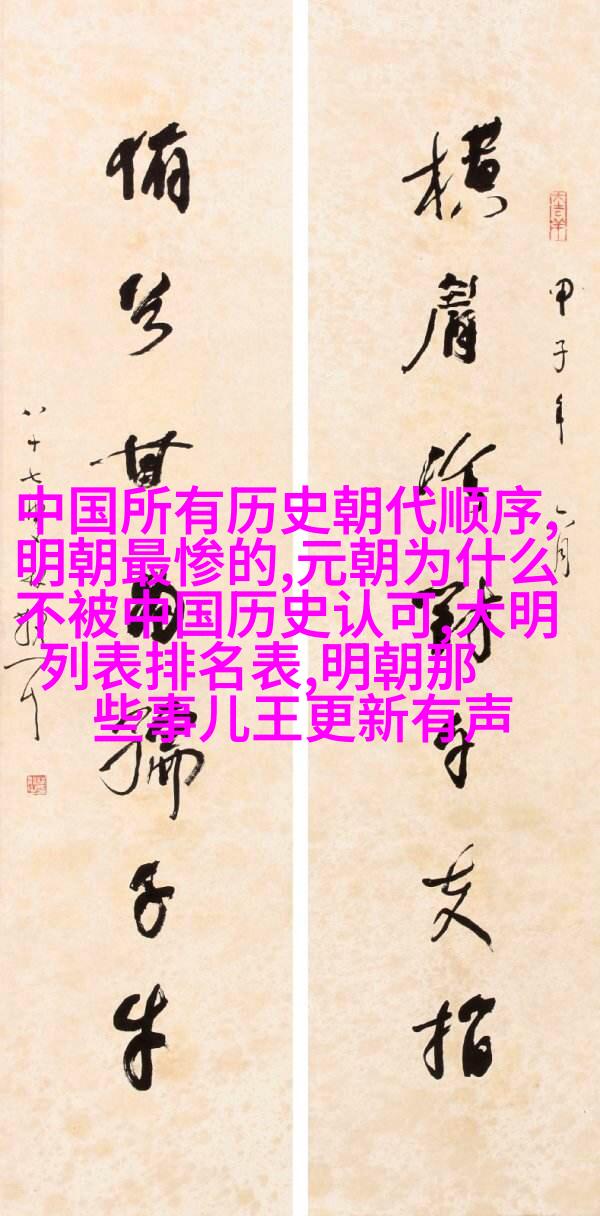 中国所有历史朝代顺序,
明朝最惨的,元朝为什么
不被中国历史认可,大明
列表排名表,明朝那
些事儿王更新有声
甲子年八月
横眉冷對千夫指
俯首甘为孺子牛
八十七